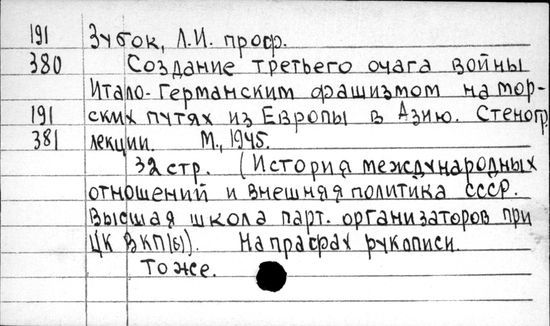 191 Зубок, Л.И. проф.
380 Создание третьего очага войны
Итало-Германским фашизмом на мор-
191 ских путях из Европы в Азию. Стеногр.
381 лекции. М., 1945.
32 стр. (История международных
отношений и внешняя политика СССР.
Высшая школа парт. организаторов при
ЦК ВКП(б)). На правах рукописи.
То же.